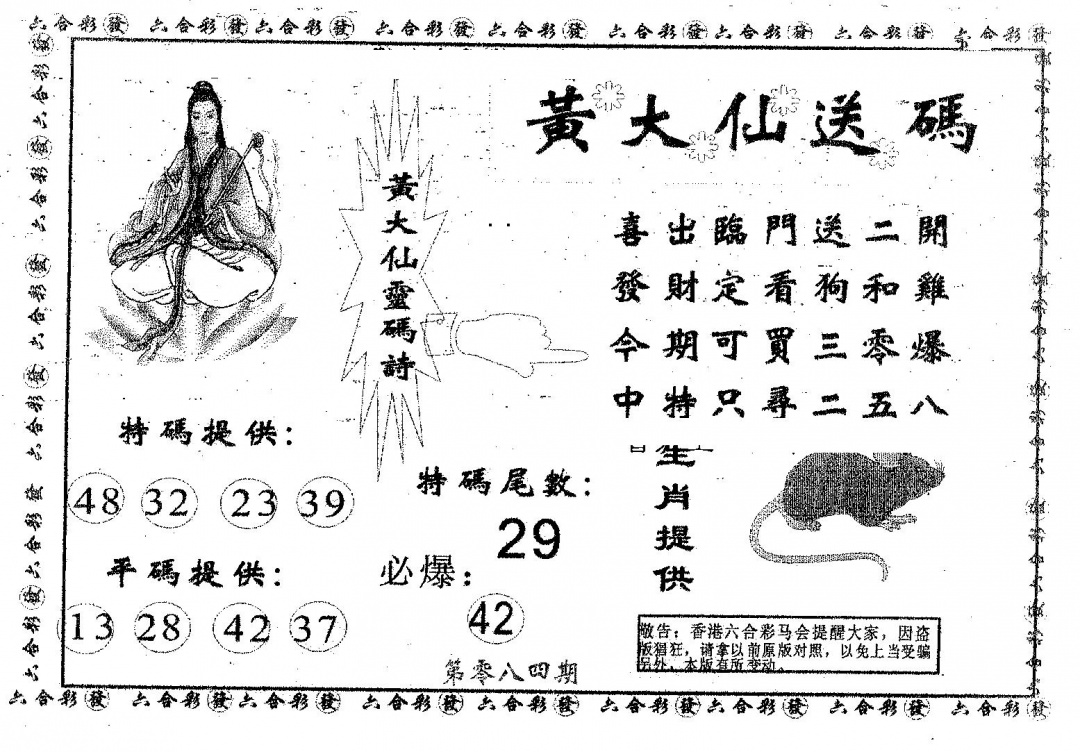 六合彩發 六合彩發六合彩發 六合彩發 六合彩發 六合彩發六合彩發 六合彩發 六合彩發
黃大仙送碼
黃大仙靈碼詩
喜出臨門送二開
發財定看狗和雞
今期可買三零爆
中特只尋二五八
特碼提供：
48 32 23 39
平碼提供：
13 28 42 37
特碼尾數：
29
必爆：
42
第零八四期
生肖提供
敬告：香港六合彩马会提醒大家，因盗
版猖狂，请拿以前原版对照，以免上当受骗
另外，本版有所变动。
六合彩發 六合彩發六合彩發 六合彩發 六合彩發 六合彩發六合彩發 六合彩發 六合彩發